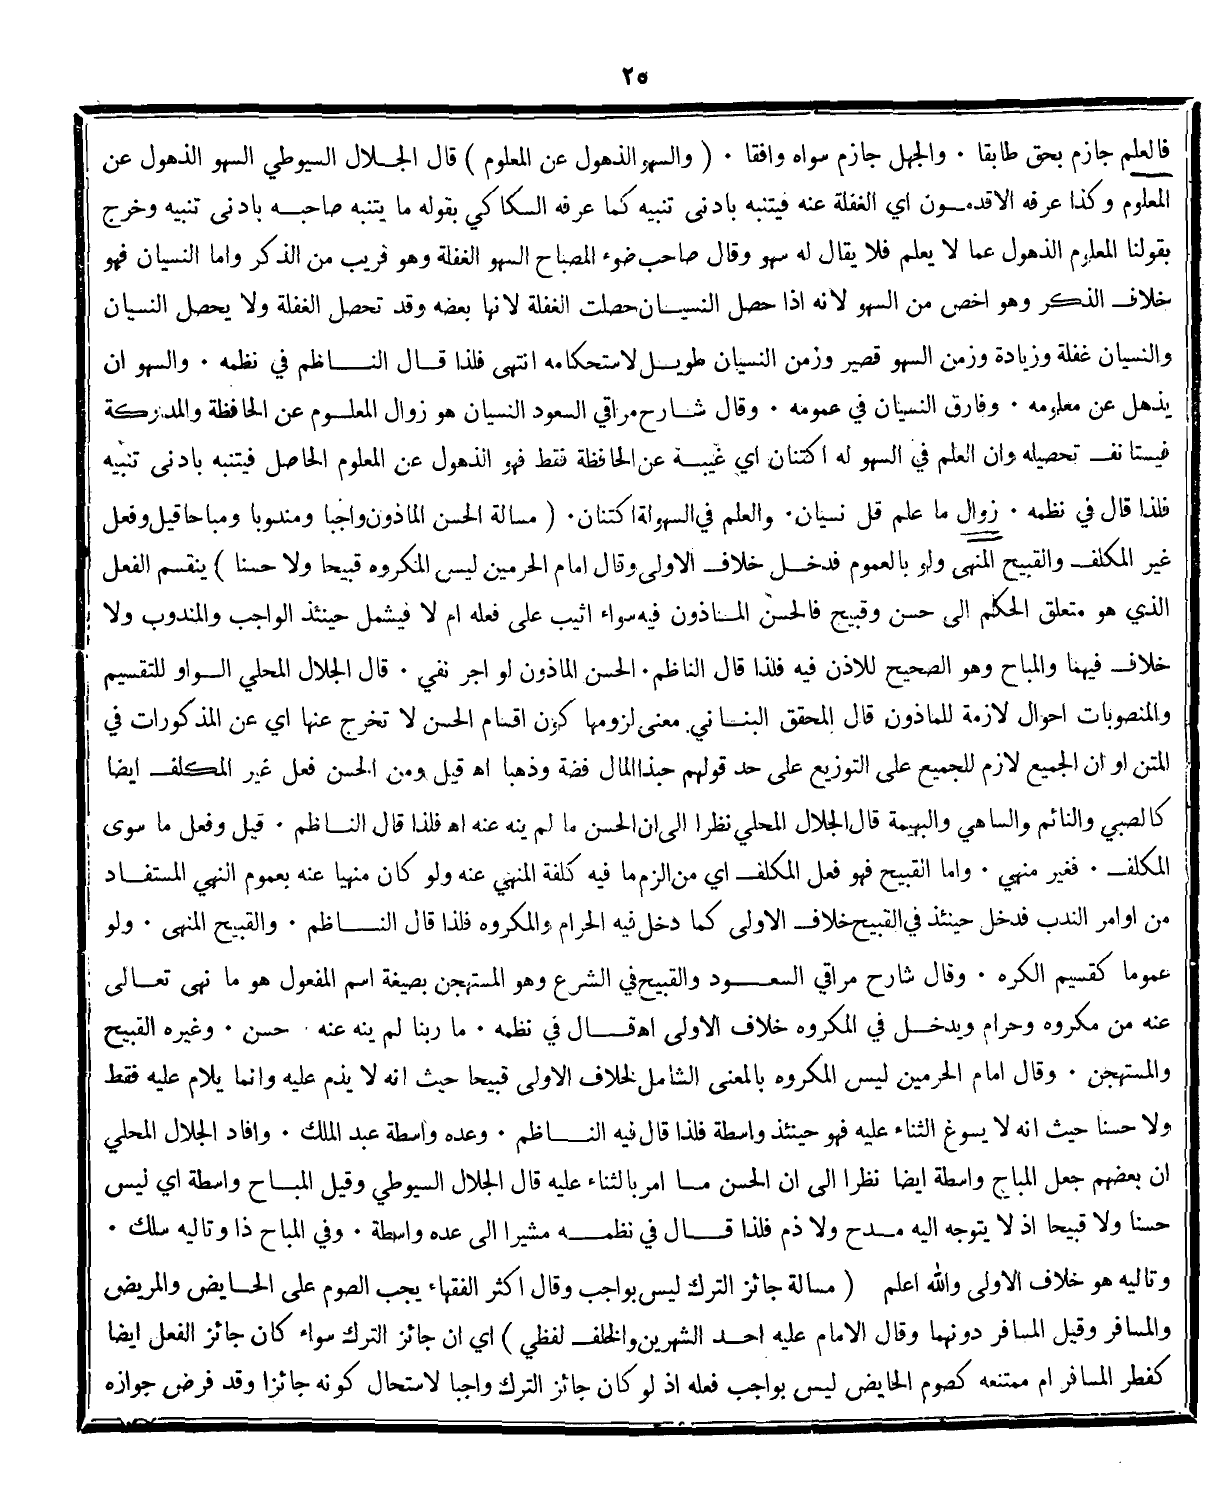 ٢٥
فالعلم جازم بحق طابقا ٠ والجهل جازم سواه وافقا ٠ ( والسهو الذهول عن المعلوم ) قال الجلال السيوطي السهو الذهول عن
المعلوم وكذا عرفه الاقدمون اي الغفلة عنه فيتنبه بادنى تنبيه كما عرفه السكاكي بقوله ما يتنبه صاحبه بادنى تنبيه وخرج
بقولنا المعلوم الذهول عما لا يعلم فلا يقال له سهو وقال صاحب ضوء المصباح السهو الغفلة وهو قريب من الذكر واما النسيان فهو
خلاف الذكر وهو اخص من السهو لانه اذا حصل النسيان حصلت الغفلة لانها بعضه وقد تحصل الغفلة ولا يحصل النسيان
والنسيان غفلة وزيادة وزمن السهو قصير وزمن النسيان طويل لاستحكامه انتهى فلذا قال الناظم في نظمه ٠ والسهو ان
يذهل عن معلومه ٠ وفارق النسيان في عمومه ٠ وقال شارح مراقي السعود النسيان هو زوال المعلوم عن الحافظة والمدركة
فيستانف تحصيله وان العلم في السهو له اكتنان اي غيبة عن الحافظة فقط فهو الذهول عن المعلوم الحاصل فيتنبه بادنى تنبيه
فلذا قال في نظمه ٠ زوال ما علم قل نسيان ٠ والعلم في السهو له اكتنان ٠ ( مسالة الحسن الماذون واجبا ومندوبا ومباحا قيل وفعل
غير المكلف والقبيح المنهى ولو بالعموم فدخل خلاف الاولى وقال امام الحرمين ليس المكروه قبيحا ولا حسنا ) ينقسم الفعل
الذي هو متعلق الحكم الى حسن وقبيح فالحسن الماذون فيه سواء اثيب على فعله ام لا فيشمل حينئذ الواجب والمندوب ولا
خلاف فيهما والمباح وهو الصحيح للاذن فيه فلذا قال الناظم ٠ الحسن الماذون لو اجر نفي ٠ قال الجلال المحلي الواو للتقسيم
والمنصوبات احوال لازمة للماذون قال المحقق البناني معنى لزومها كون اقسام الحسن لا تخرج عنها اي عن المذكورات في
المتن او ان الجميع لازم للجميع على التوزيع على حد قولهم حبذا المال فضة وذهبا اه قيل ومن الحسن فعل غير المكلف ايضا
كالصبي والنائم والساهي والبهيمة قال الجلال المحلي نظرا الى ان الحسن ما لم ينه عنه اه فلذا قال الناظم ٠ قيل وفعل ما سوى
المكلف ٠ فغير منهي ٠ واما القبيح فهو فعل المكلف اي من الزم ما فيه كلفة المنهي عنه ولو كان منهيا عنه بعموم النهي المستفاد
من اوامر الندب فدخل حينئذ في القبيح خلاف الاولى كما دخل فيه الحرام والمكروه فلذا قال الناظم ٠ والقبيح المنهى ٠ ولو
عموما كقسيم الكره ٠ وقال شارح مراقي السعود والقبيح في الشرع وهو المستهجن بصيغة اسم المفعول هو ما نهى تعالى
عنه من مكروه وحرام ويدخل في المكروه خلاف الاولى اه قال في نظمه ٠ ما ربنا لم ينه عنه ٠ حسن ٠ وغيره القبيح
والمستهجن ٠ وقال امام الحرمين ليس المكروه بالمعنى الشامل لخلاف الاولى قبيحا حيث انه لا يذم عليه وانما يلام عليه فقط
ولا حسنا حيث انه لا يسوغ الثناء عليه فهو حينئذ واسطة فلذا قال فيه الناظم ٠ وعده واسطة عبد الملك ٠ وافاد الجلال المحلي
ان بعضهم جعل المباح واسطة ايضا نظرا الى ان الحسن ما امر بالثناء عليه قال الجلال السيوطي وقيل المباح واسطة اي ليس
حسنا ولا قبيحا اذ لا يتوجه اليه مدح ولا ذم فلذا قال في نظمه مشيرا الى عده واسطة ٠ وفي المباح ذا وتاليه سلك ٠
وتاليه هو خلاف الاولى والله اعلم ( مسالة جائز الترك ليس بواجب وقال اكثر الفقهاء يجب الصوم على الحايض والمريض
والمسافر وقيل المسافر دونهما وقال الامام عليه احد الشهرين والخلف لفظي ) اي ان جائز الترك سواء كان جائز الفعل ايضا
كفطر المسافر ام ممتنعه كصوم الحايض ليس بواجب فعله اذ لو كان جائز الترك واجبا لاستحال كونه جائزا وقد فرض جوازه